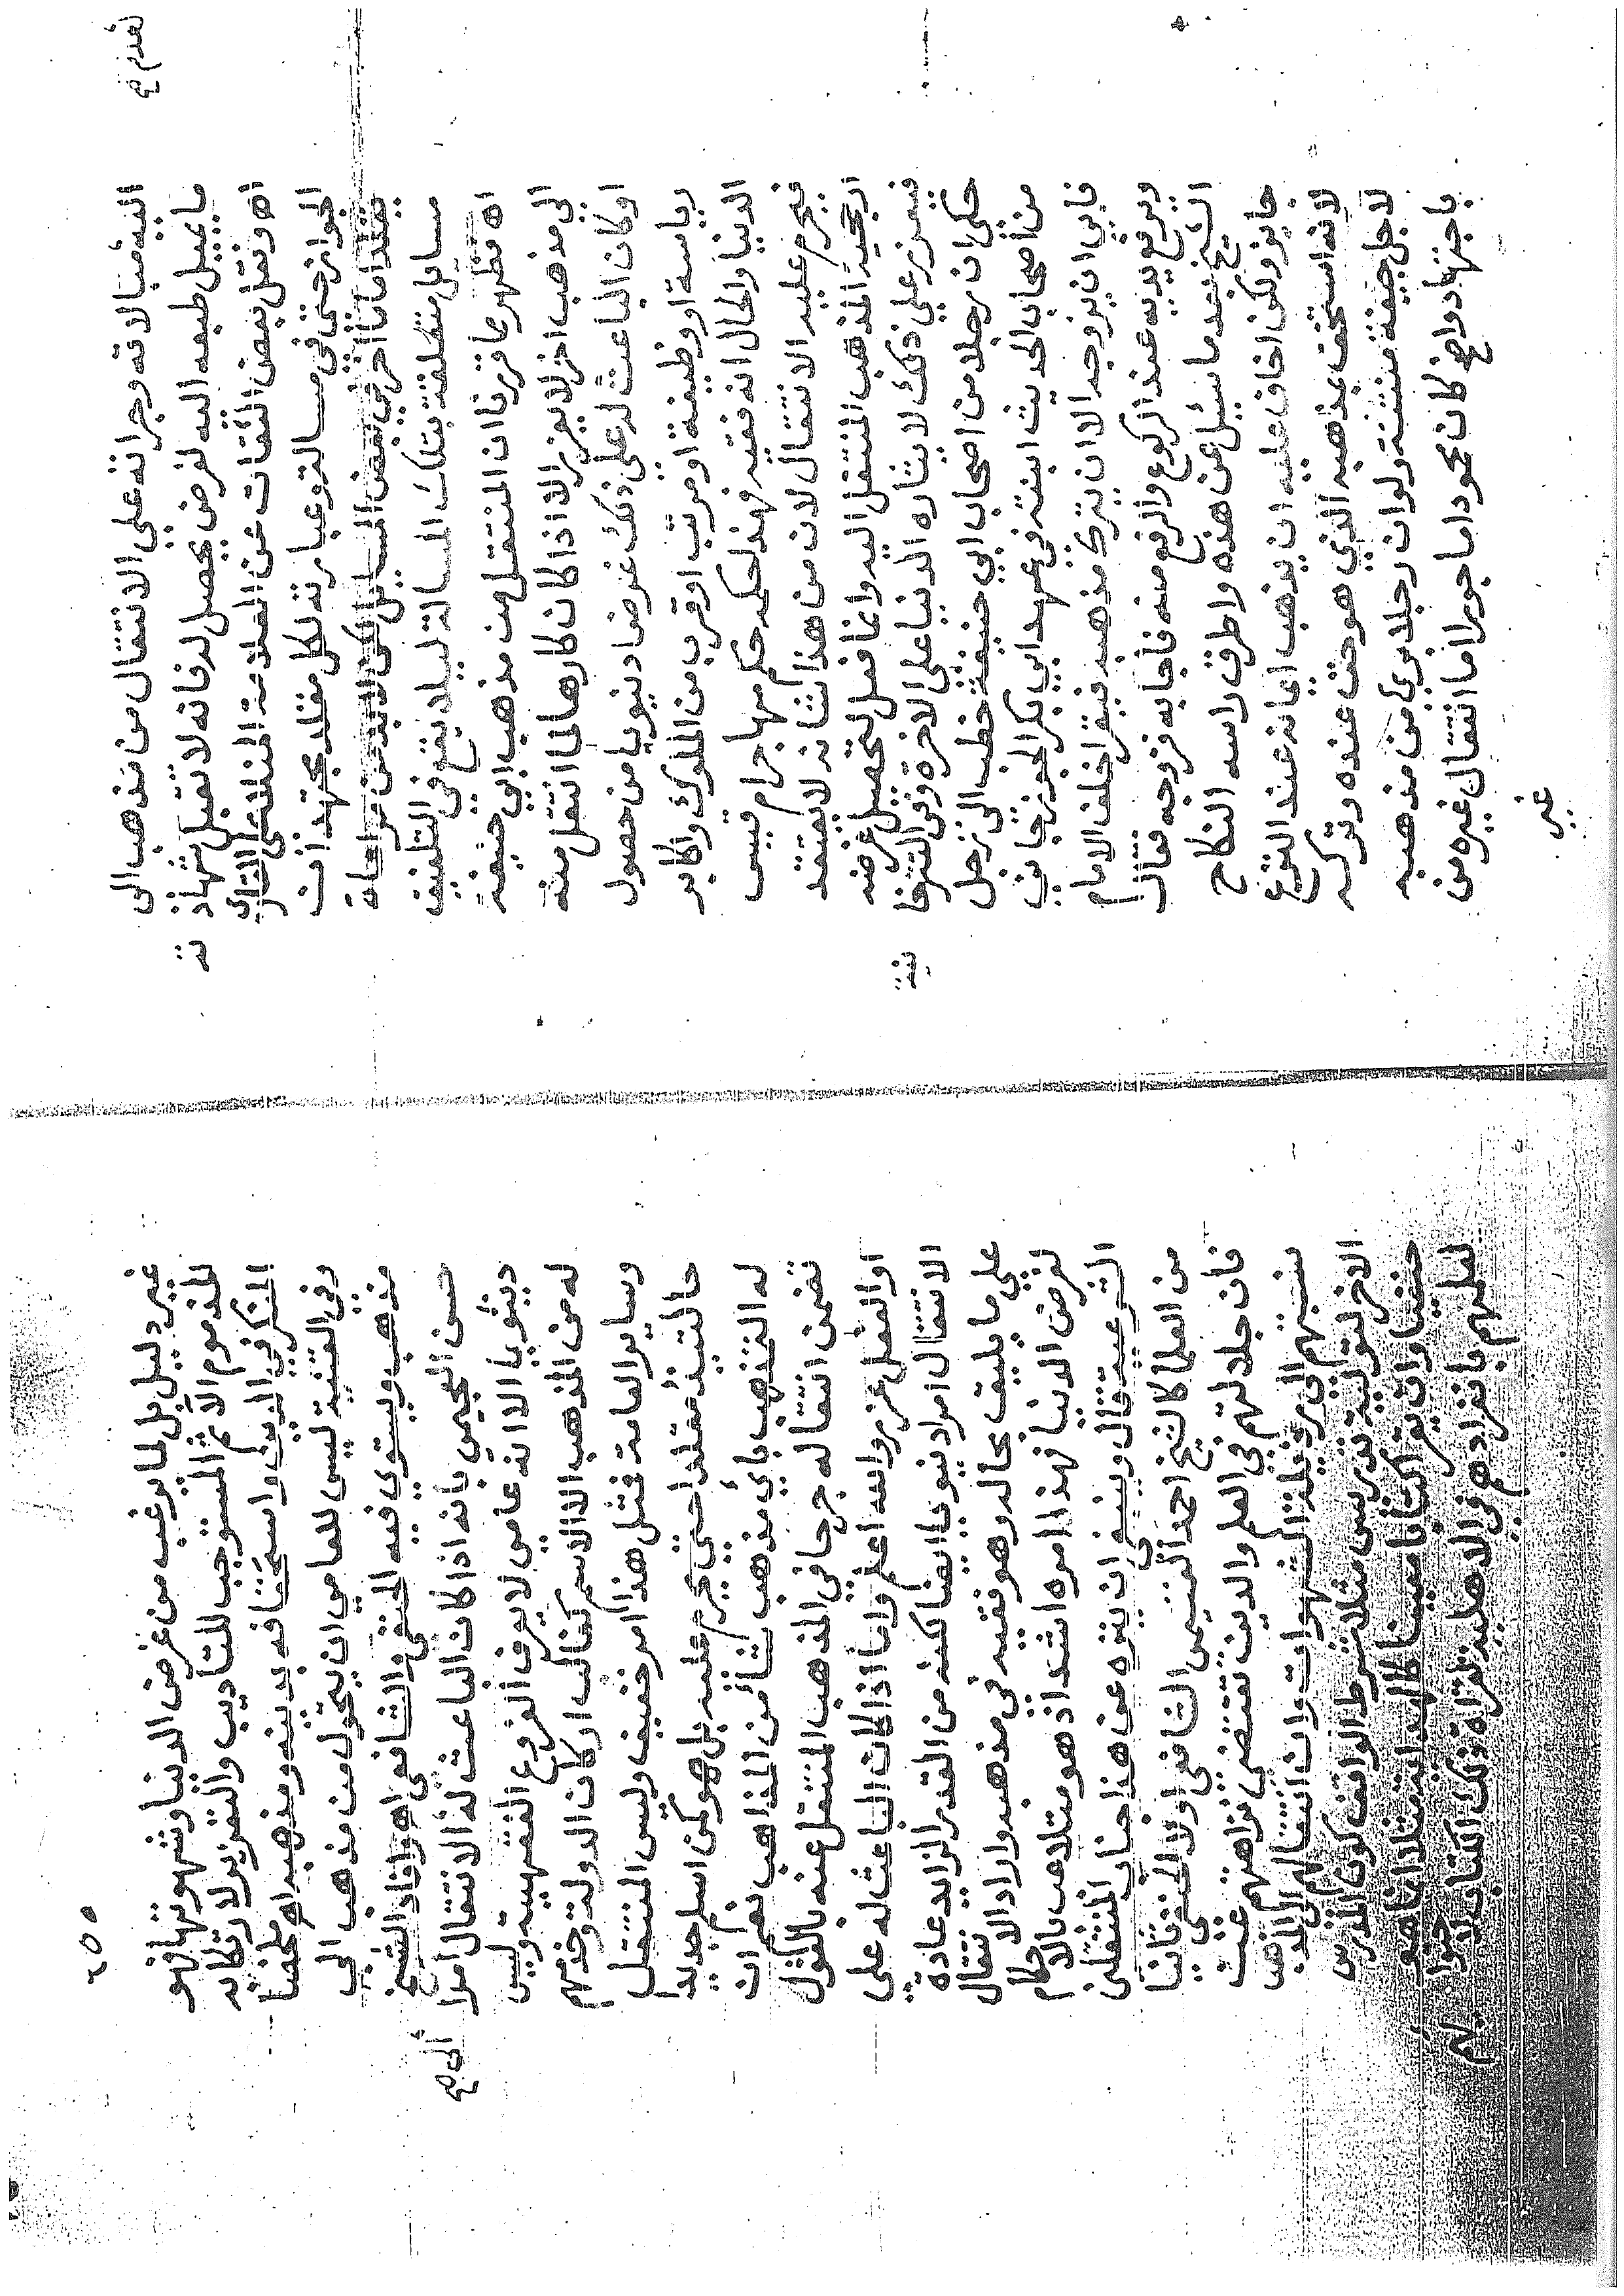 لعدم صح
اليه مبالاته وجرانه على الانتقال من مذهب الى
ما يميل طبعه اليه لغرض يحصل له فانه لا تقبل شهادته
اه ونقل بعض الثقات عن العلامة المنلا على القارى
الجواز حتى في مسالة وعبارته لكل مقلد مجتهد ان
يقلد اماما آخر في بعض المسايل لكن لا بد من مراعاة
مسايل متعلقة بتلك المسالة ليلا يقع في التلفيق
اه فظهر مما قررنا ان المنتقل من مذهب ابي حنيفة
الى مذهب اخر لا يعزر الا اذا كان كارها لما انتقل منه
او كان الباعث له على ذلك غرضا دنيويا من حصول
رياسة او وظيفة او مرتب او قرب من الملوك واكابر
الدنيا والحال انه فقيه فهذا حكمه حكم مهاجر ام قيس
فيحرم عليه الانتقال لان من هذا شانه لا يعتقد
ارجحية المذهب المنتقل اليه وانما فعل لتحصيل غرضه
فيعزر على ذلك لايثاره الدنيا على الاخرة وفي التترخانية
حكى ان رجلا من اصحاب ابي حنيفة خطب الى رجل
من اصحاب الحديث ابنته في عهد ابي بكر الجوزجاني
فابى ان يزوجه الا ان يترك مذهبه فيقرا خلف الامام
ويرفع يديه عند الركوع والرفع منه فاجابه فزوجه فقال
الشيخ بعد ما سئل عن هذه واطرق راسه النكاح
جايز ولكن اخاف عليه ان يذهب ايمانه عند النزع
لانه استخف بمذهبه الذي هو حق عنده وتركه
لاجل جيفة منتنة ولو ان رجلا برئ من مذهبه
باجتهاد واضح كان محمودا ماجورا اما انتقال غيره من
غير
٢٥٥
غير دليل بل لما يرغب من غرض الدنيا وشهوتها فهو
المذموم الآثم المستوجب للتاديب والتعزير لارتكابه
المنكر في الدين واستخفافه بدينه ومذهبه اه ملخصا
وفي القنية ليس للعامي ان يتحول من مذهب الى
مذهب ويستوي فيه الحنفي والشافعي اه وافاد الشيخ
حسن العجيمي بانه اذا كان الباعث له الى الانتقال امرا
دنيويا الا انه عامي لا يعرف الفروع الفقهية وليس
له من المذهب الا الاسم كغالب اركان الدولة وخدمهم
وساير العامة فمثل هذا امر خفيف وليس المنتقل
حالتيذ مقلدا حتى يحرم عليه بل هو كمن اسلم جديدا
له التمذهب باي مذهب شأ من المذاهب نعم ان
تضمن انتقاله جرحا في المذهب المنتقل عنه بالقول
او الفعل عزر والله اعلم واما اذا كان الباعث له على
الانتقال امرا دنيويا ايضا لكنه من القدر الزايد عادة
على ما يليق بحاله وهو فقيه في مذهبه واراد الانتقال
لغرض الدنيا فهذا امره اشد اذ هو متلاعب بالاحكام
الشرعية قال وينبغي ان ينزه عن هذا جناب المنتقلين
من العلما كالشيخ احمد القسيمي الشافعي اولا الحنفي ثانيا
فان جلالتهم في العلم والدين تقتضي نزاهتهم عن
نسبتهم الى مرذيلة الشهوات وان انتقالهم الى المذهب
الاخر لتولية تدريس مثلا شرط الواقف كون المدرس
حنفيا وان يقرا كتابا معينا كالهداية مثلا انما هو
لعلمهم بانفرادهم في الاهلية لقراة ذلك الكتاب لا
جبرا لهم